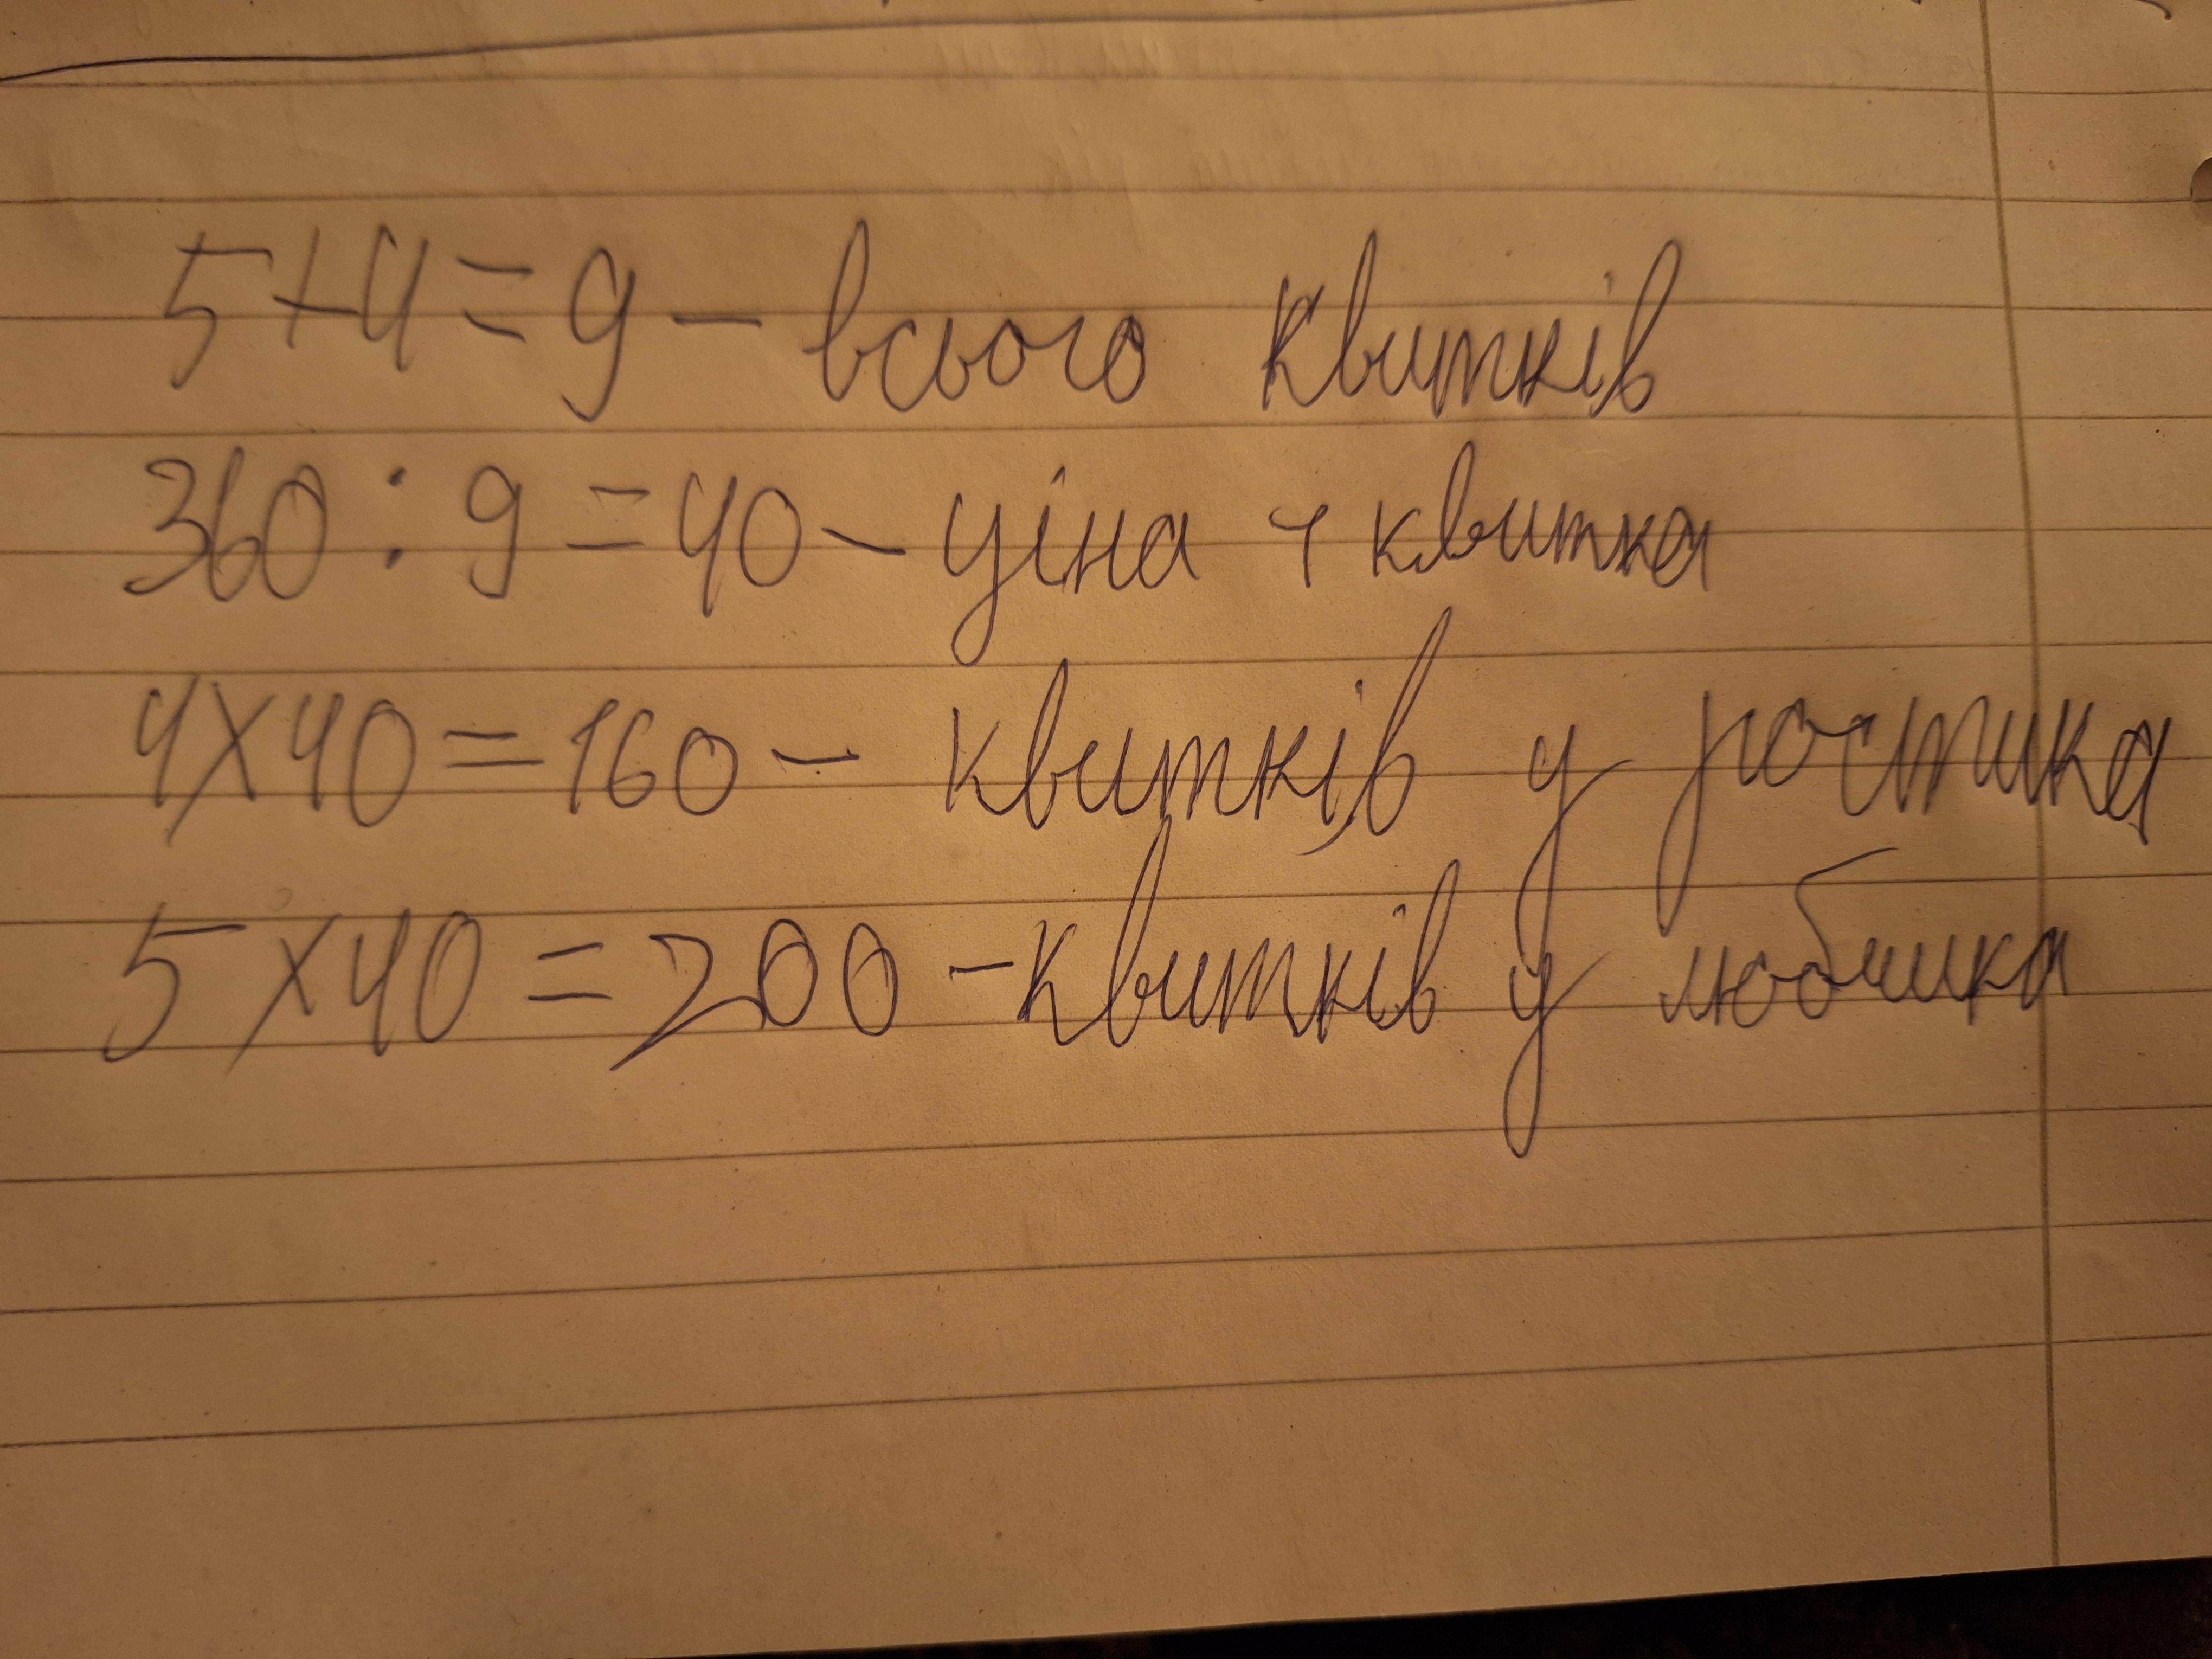 5+4=9 - всього квитків
360:9=40 - ціна 1 квитка
4x40=160 - квитків у ростика
5x40=200 - квитків у любчика